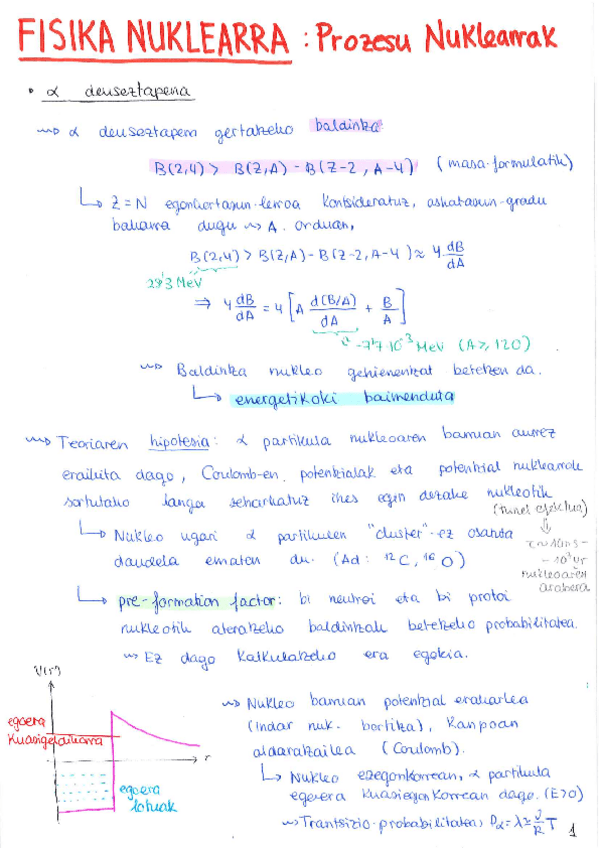 FISIKA NUKLEARRA : Prozesu Nuklearrak
• α deuseztapena
⇝ α deuseztapena gertatzeko baldintza
B(2,4) > B(Z,A) - B(Z-2, A-4) (masa-formulatik)
↳ Z = N egonkortasun-lerroa kontsideratuz, askatasun-gradu
bakarra dugu ⇝ A. orduan,
B(2,4) > B(Z,A) - B(Z-2, A-4) ≈ 4 dB/dA
28'3 MeV
⇒ 4 dB/dA = 4 [A d(B/A)/dA + B/A]
-7'7·10⁻³ MeV (A ≥ 120)
⇝ Baldintza nukleo gehienentzat betetzen da.
↳ energetikoki baimenduta
⇝ Teoriaren hipotesia: α partikula nukleoaren barruan aurrez
eraikita dago, Coulomb-en potentzialak eta potentzial nuklearrak
sortutako langa zeharkatuz ihes egin dezake nukleotik
(tunel efektua)
↳ Nukleo ugari α partikulen "cluster"-ez osatuta
daudela ematen du. (Ad: ¹²C, ¹⁶O)
⇓
τ ~ 10ns -
nukleoaren
arabera
↳ pre-formation factor: bi neutroi eta bi protoi
nukleotik ateratzeko baldintzak betetzeko probabilitatea.
⇝ Ez dago kalkulatzeko era egokia.
V(r)
egoera
kuasigeldikorra
r
egoera
lotuak
⇝ Nukleo barruan potentzial erakarlea
(indar nuk. bortitza), kanpoan
aldaratzailea (Coulomb).
↳ Nukleo ezegonkorrean, α partikula
egoera kuasiegonkorrean dago. (E>0)
⇝ Trantsizio-probabilitatea, Pα = λ ≃ T
1